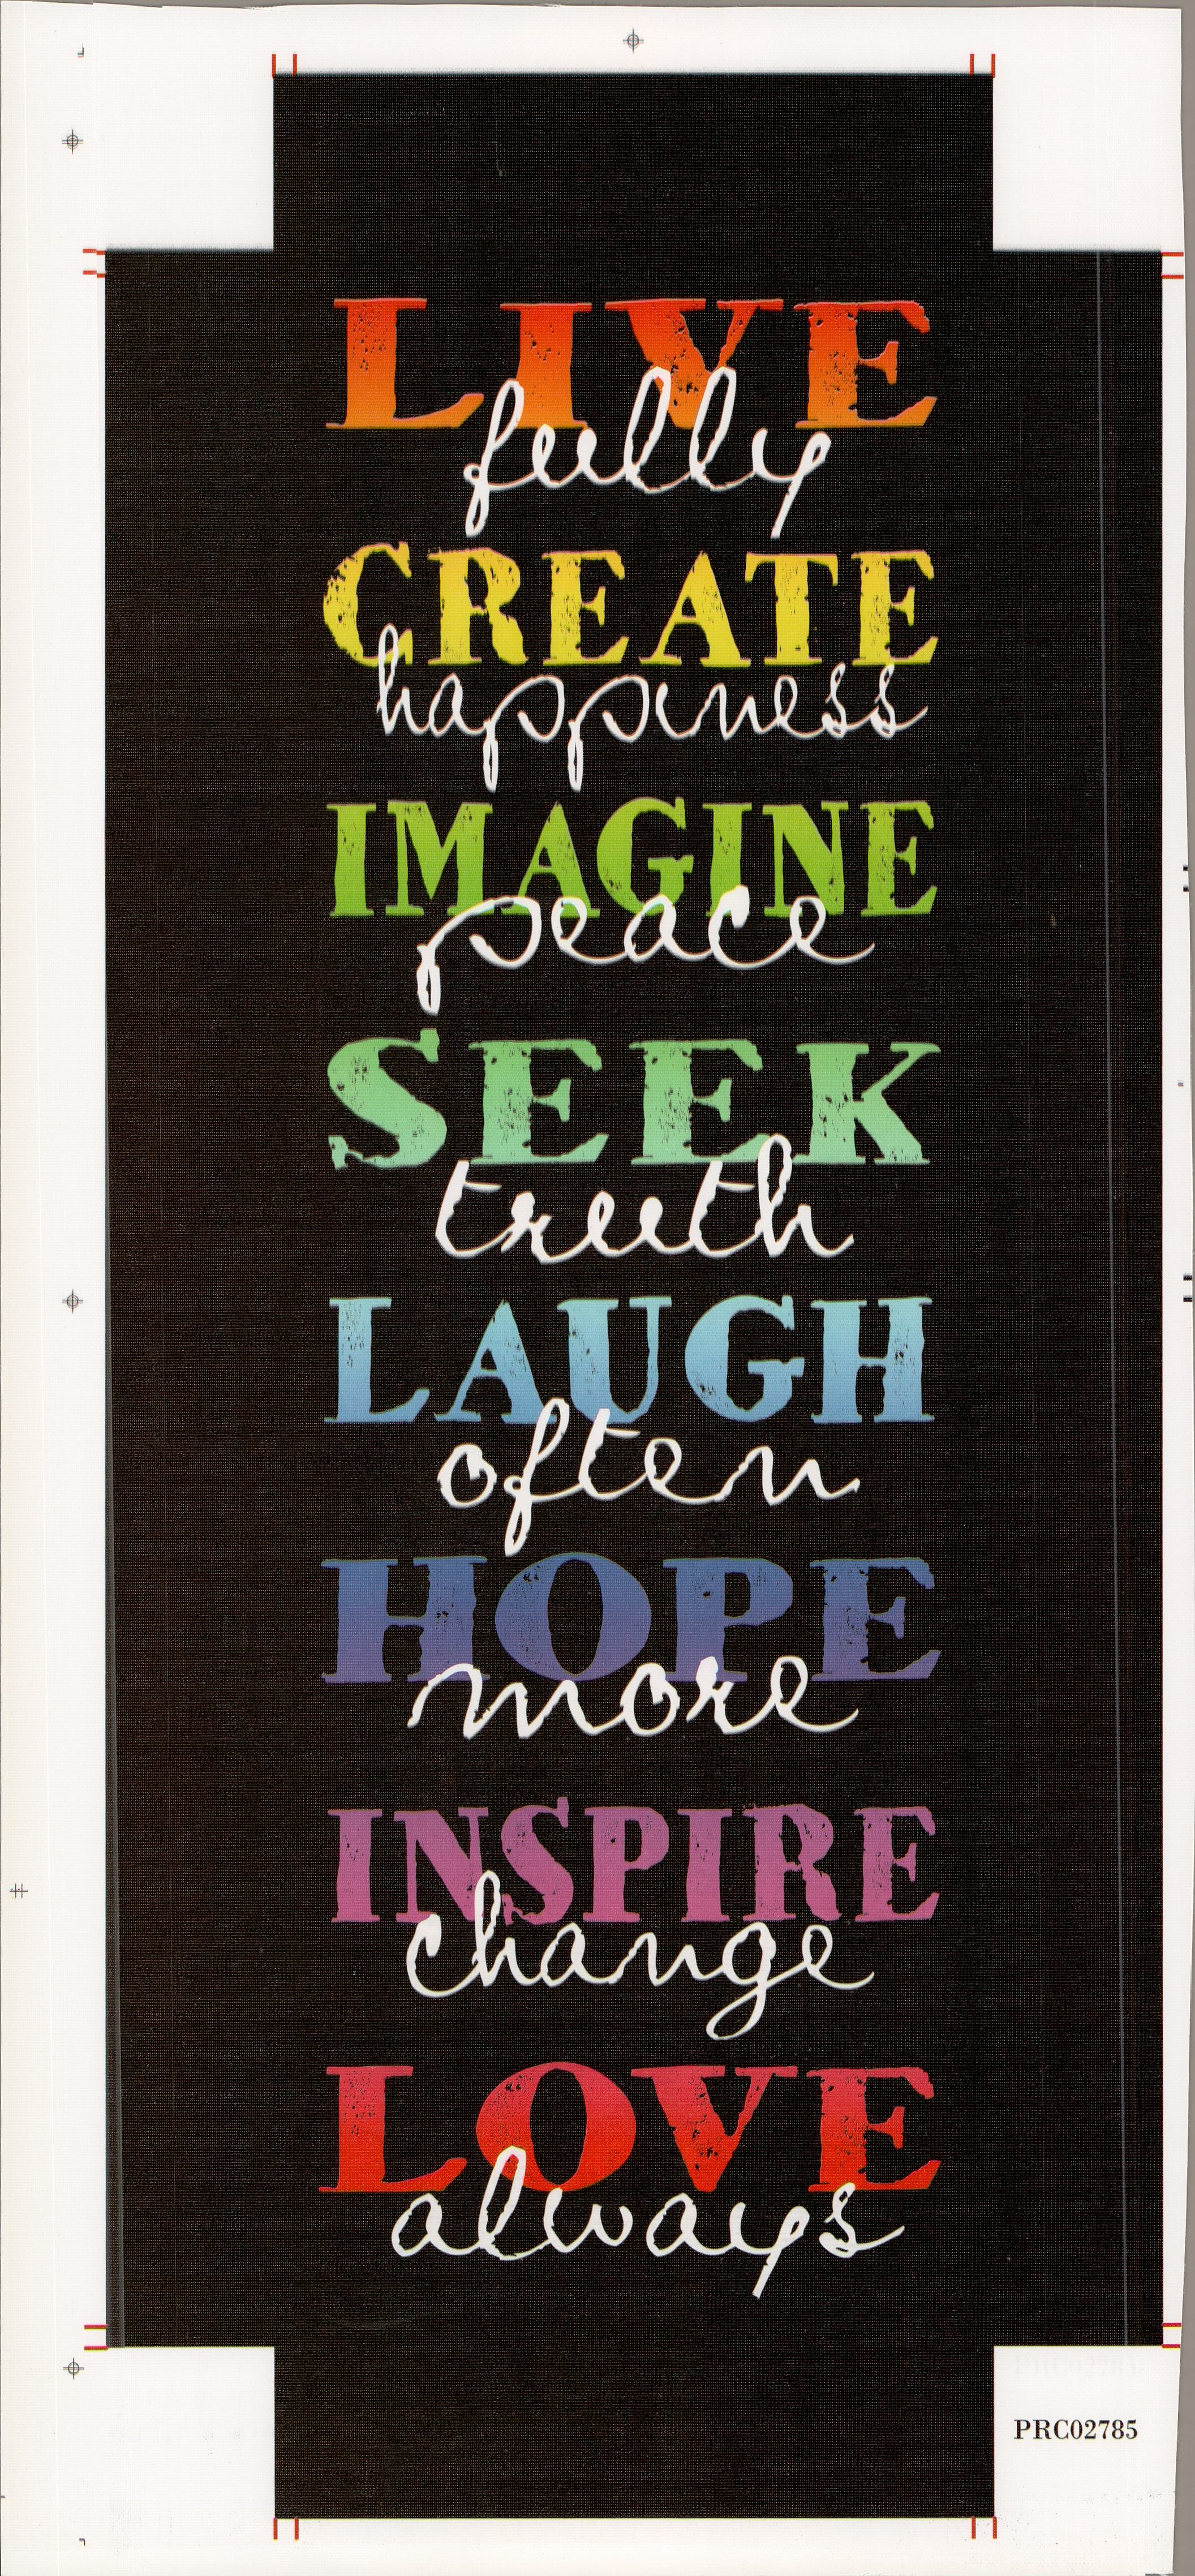 LIVE
fully
CREATE
happiness
IMAGINE
peace
SEEK
truth
LAUGH
often
HOPE
more
INSPIRE
change
LOVE
always
PRC02785